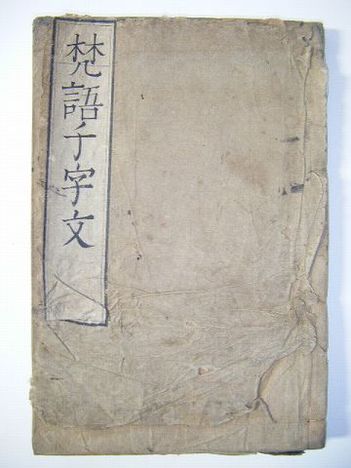 梵語千字文